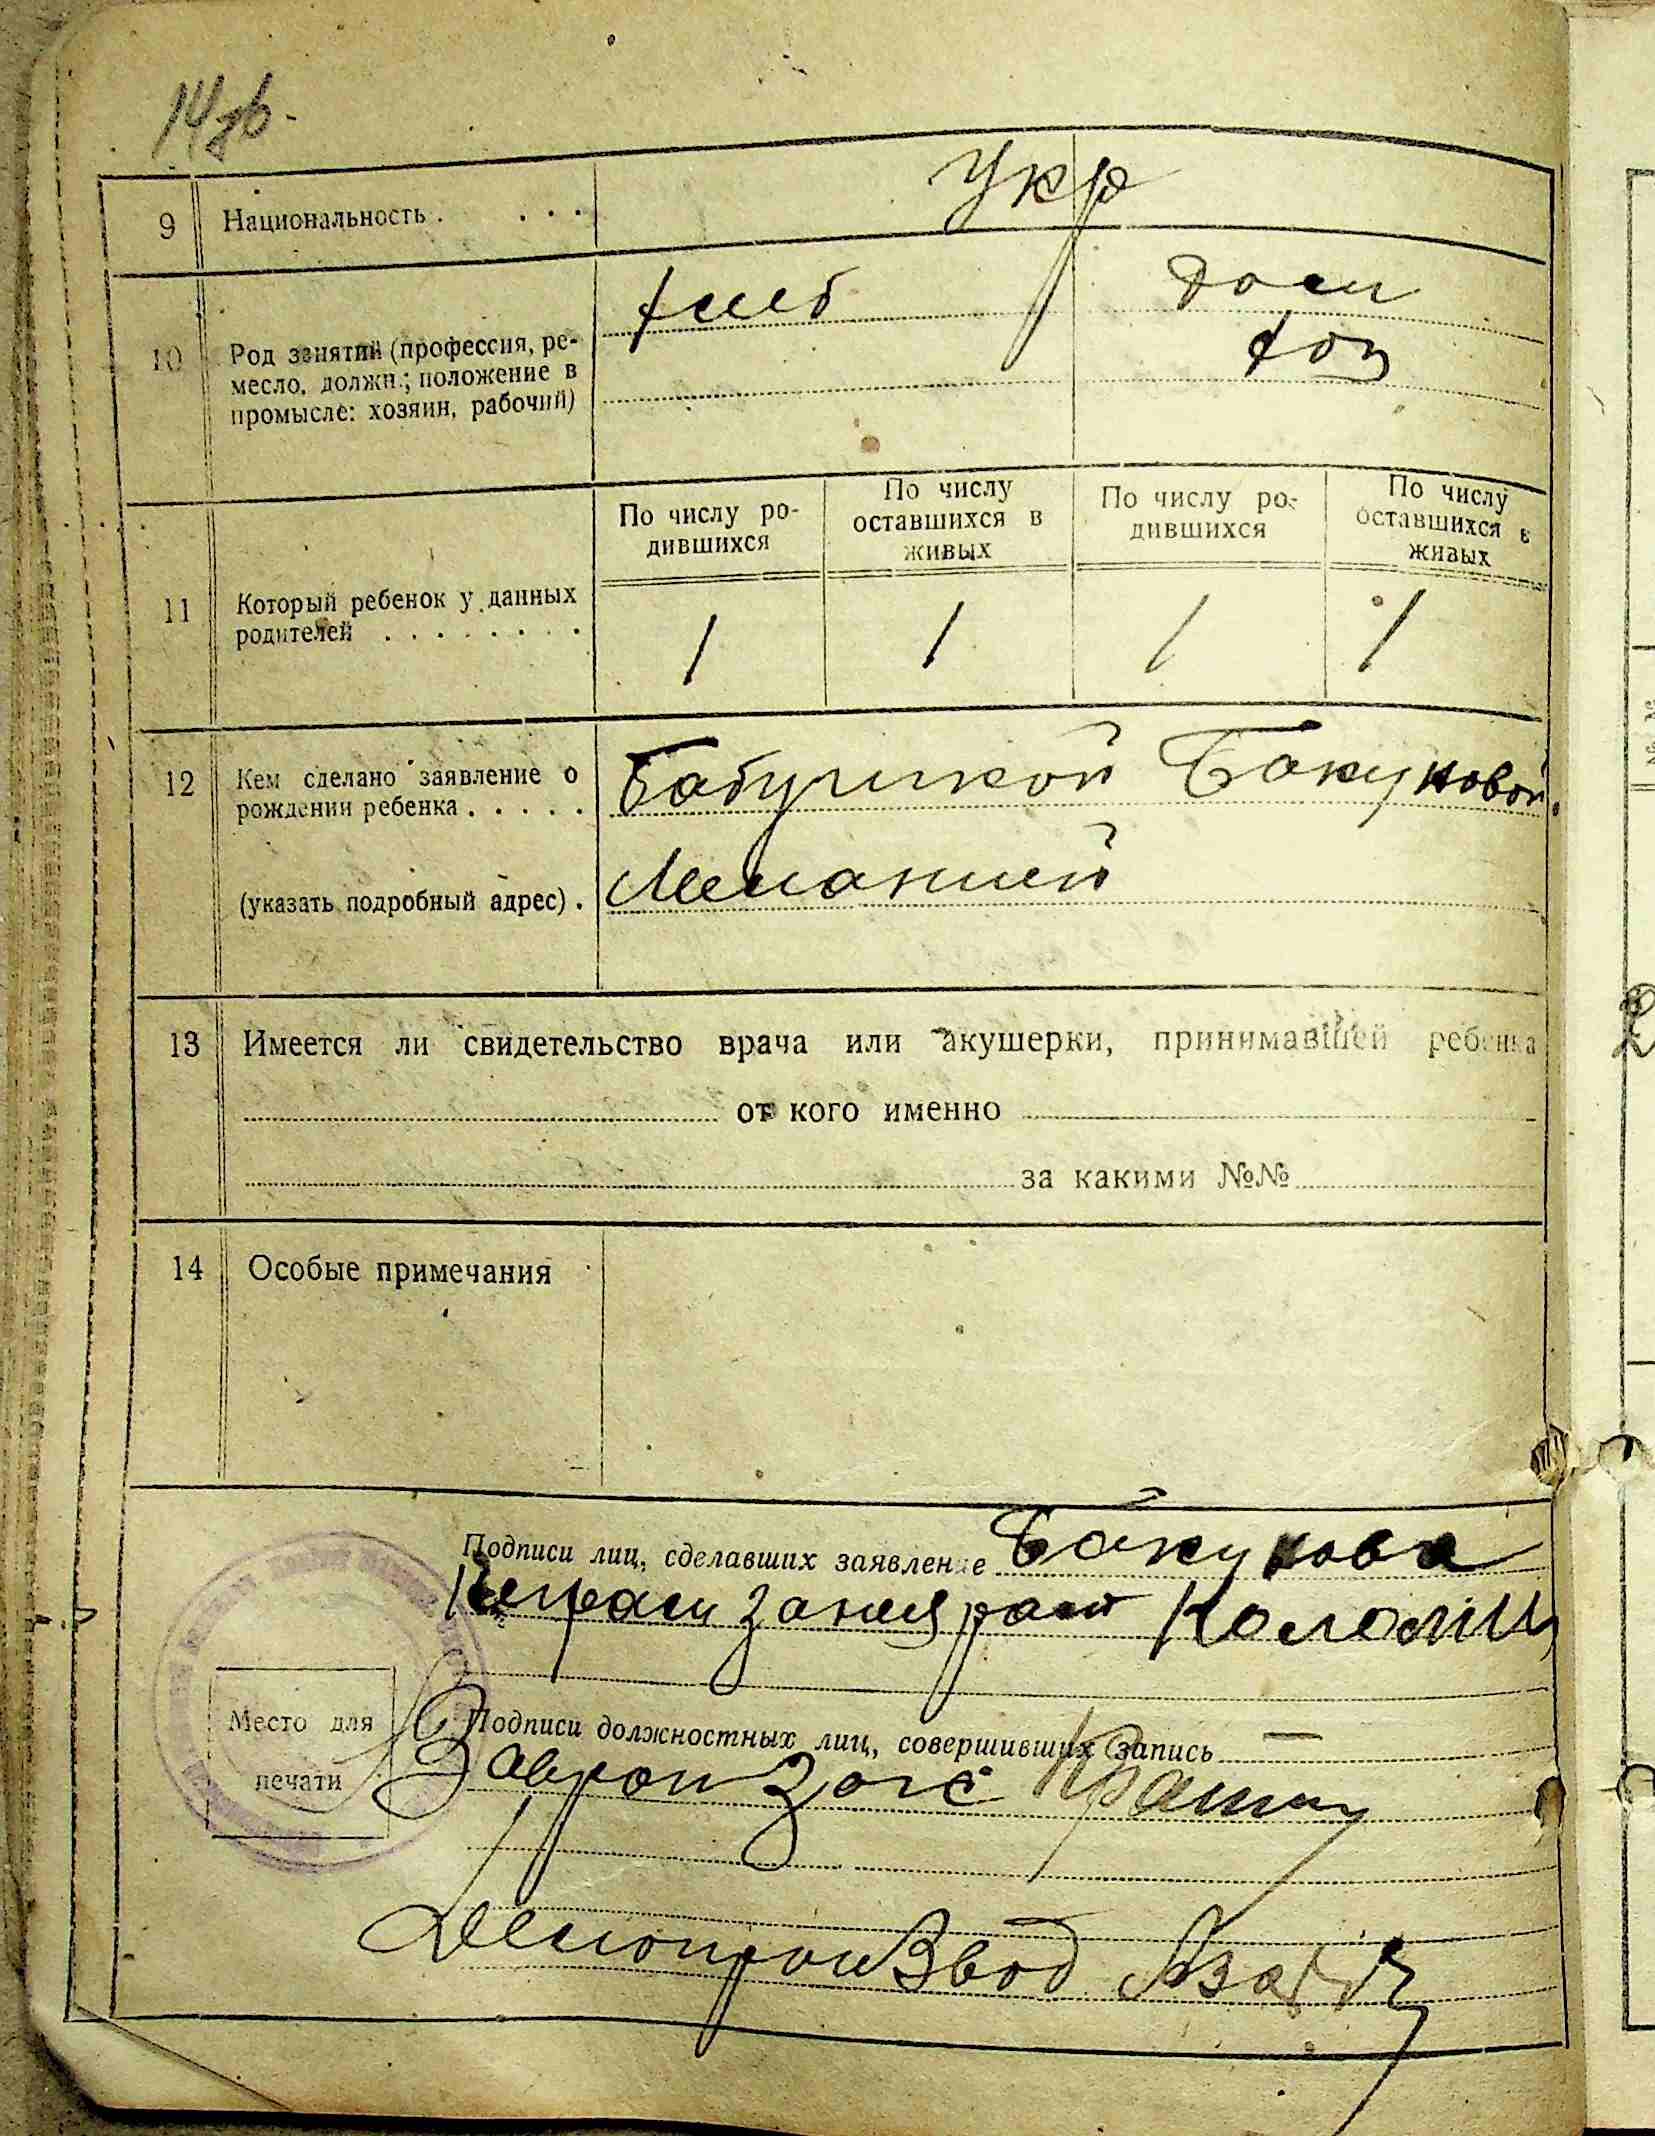 14 зв.
9 Национальность . . . . Укр
10 Род занятий (профессия, ре-
месло, должн.; положение в
промысле: хозяин, рабочий)
хлеб
дом
хоз
11 Который ребенок у данных
родителей . . . . . . . .
По числу ро-
дившихся
По числу
оставшихся в
живых
По числу ро-
дившихся
По числу
оставшихся в
живых
1 1 1 1
12 Кем сделано заявление о
рождении ребенка . . . . .
(указать подробный адрес) .
Бабушкой Бакуновой
Меланией
13 Имеется ли свидетельство врача или акушерки, принимавшей ребенка
от кого именно
за какими №№
14 Особые примечания
Подписи лиц, сделавших заявление Бакунова
Неграм за нея
Место для
печати
Подписи должностных лиц, совершивших запись
Заврай Загс
Делопроизвод